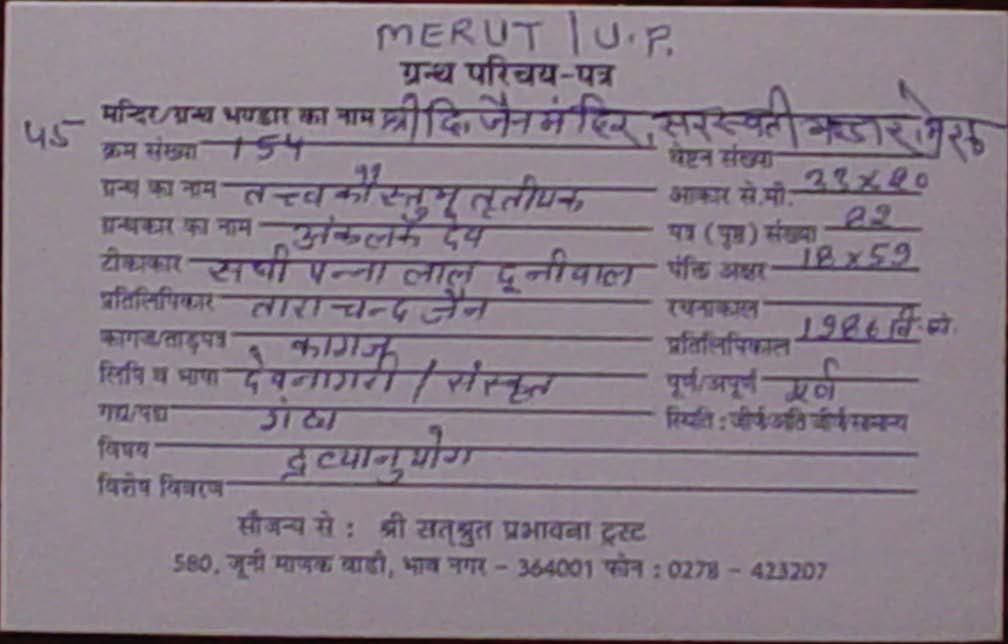 MERUT / U.P.
ग्रन्थ परिचय-पत्र
मन्दिर/ग्रन्थ भण्डार का नाम श्री दि. जैन मंदिर, सरस्वती भण्डार, मेरठ
45
क्रम संख्या 154 वेष्टन संख्या
ग्रन्थ का नाम तत्त्व कौस्तुभ तृतीयक आकार से.मी. 33x20
ग्रन्थकार का नाम अंकलंक देव पत्र (पृष्ठ) संख्या 82
टीकाकार सघी पन्ना लाल दूनीवाल पंक्ति अक्षर 18x59
प्रतिलिपिकार तारा चन्द जैन रचनाकाल
कागज/ताड़पत्र कागज प्रतिलिपिकाल 1986
लिपि व भाषा देवनागरी / संस्कृत पूर्ण/अपूर्ण पूर्ण
गद्य/पद्य स्थिति : जीर्ण/अति जीर्ण/सामान्य
विषय द्रव्यानुयोग
विशेष विवरण
सौजन्य से : श्री सत्श्रुत प्रभावना ट्रस्ट
580, जूनी माणक वाडी, भाव नगर - 364001 फोन : 0278 - 423207